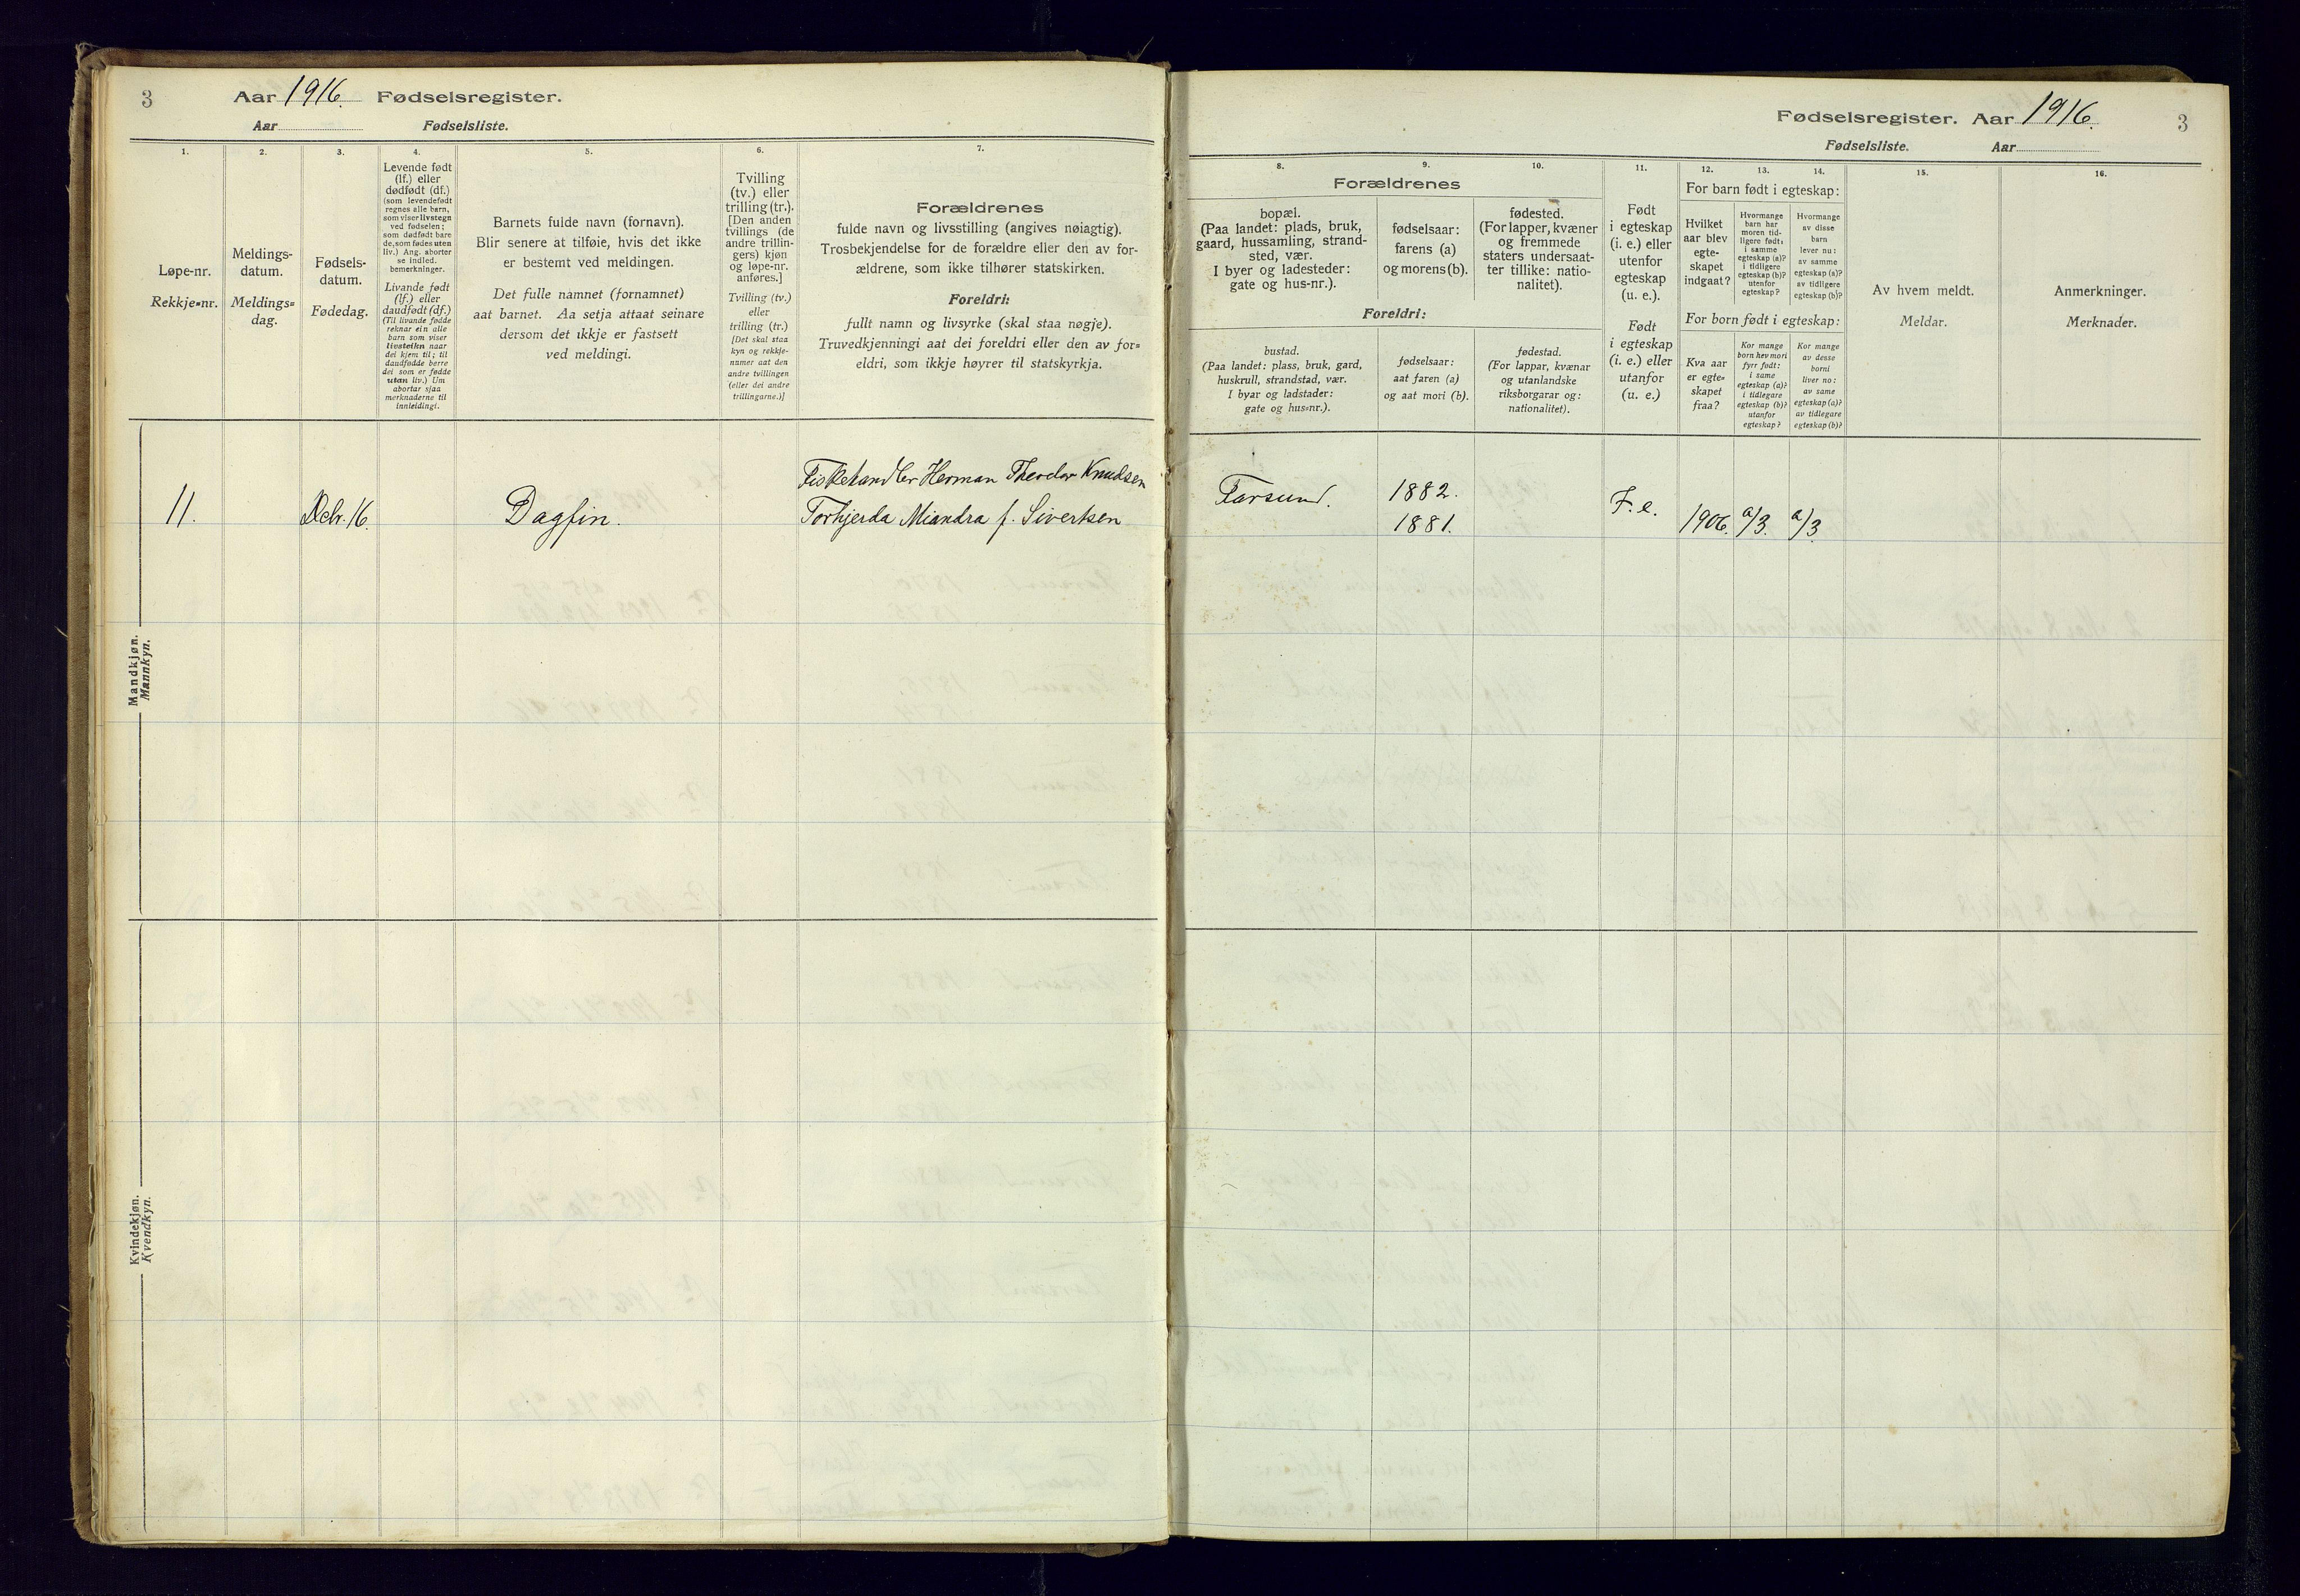 3
Aar 1916. Fødselsregister.
Aar Fødselsliste.
1.
2.
3.
4.
5.
6.
7.
Løpe-nr.
Rekkje=nr.
Meldings-
datum.
Meldings=
dag.
Fødsels-
datum.
Fødedag.
Levende født
(lf.) eller
dødfødt (df.)
(som levendefødt
regnes alle barn,
som viser livstegn
ved fødselen;
som dødfødt bare
de, som fødes uten
liv.) Ang. aborter
se indled.
bemerkninger.
Livande født
(lf.) eller
daudfødt (df.)
(Til livande fødde
reknar ein alle
barn som viser
livsteikn naar
dei kjem til; til
daudfødde berre
dei som er fødde
utan liv.) Um
abortar sjaa
merknaderne til
innleidingi.
Barnets fulde navn (fornavn).
Blir senere at tilføie, hvis det ikke
er bestemt ved meldingen.
Det fulle namnet (fornamnet)
aat barnet. Aa setja attaat seinare
dersom det ikkje er fastsett
ved meldingi.
Tvilling
(tv.) eller
trilling (tr.).
[Den anden
tvillings (de
andre trillin-
gers) kjøn
og løpe-nr.
anføres.]
Tvilling (tv.)
eller
trilling (tr.)
[Det skal staa
kyn og rekkje-
numer aat den
andre tvillingen
(eller dei andre
trillingarne.)]
Forældrenes
fulde navn og livsstilling (angives nøiagtig).
Trosbekjendelse for de forældre eller den av for-
ældrene, som ikke tilhører statskirken.
Foreldri:
fullt namn og livsyrke (skal staa nøgje).
Truvedkjenningi aat dei foreldri eller den av for=
eldri, som ikkje høyrer til statskyrkja.
Mandkjøn.
Mannkyn.
11.
Debr. 16.
Dagfin.
Fiskehandler Herman Theodor Knudsen
Torhjerda Miandra f. Sivertsen
Kvindekjøn.
Kvendkyn.
Fødselsregister. Aar 1916.
3
Fødselsliste. Aar
8.
9.
10.
11.
12.
13.
14.
15.
16.
Forældrenes
bopæl.
(Paa landet: plads, bruk,
gaard, hussamling, strand-
sted, vær.
I byer og ladesteder:
gate og hus-nr.).
fødselsaar:
farens (a)
og morens (b).
fødested.
(For lapper, kvæner
og fremmede
staters undersaat-
ter tillike: natio-
nalitet).
Foreldri:
bustad.
(Paa landet: plass, bruk, gard,
huskrull, strandstad, vær.
I byar og ladstader:
gate og hus=nr.).
fødselsaar:
aat faren (a)
og aat mori (b).
fødestad.
(For lappar, kvænar
og utanlandske
riksborgarar og:
nationalitet).
Født
i egteskap
(i. e.) eller
utenfor
egteskap
(u. e.).
Født
i egteskap
(i. e.) eller
utanfor
(u. e.)
For barn født i egteskap:
Hvilket
aar blev
egte-
skapet
indgaat?
Hvormange
barn har
moren tid-
ligere født:
i samme
egteskap (a)?
i tidligere
egteskap (b)?
utenfor
egteskap?
Hvormange
av disse
barn
lever nu:
av samme
egteskap (a)?
av tidligere
egteskap (b)?
For born født i egteskap:
Kva aar
er egte=
skapet
fraa?
Kor mange
born hev mori
fyrr født:
i same
egteskap (a)?
i tidlegare
egteskap (b)?
utanfor
egteskap?
Kor mange
av desse
borni
liver no:
av same
egteskap (a)?
av tidlegare
egteskap (b)?
Av hvem meldt.
Meldar.
Anmerkninger.
Merknader.
Farsund.
1882.
1881.
F. e.
1906.
a/3.
a/3.